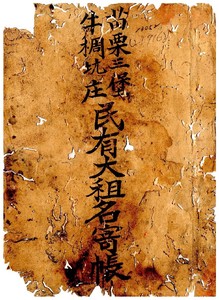 苗栗三堡
牛稠坑庄
民有大租名寄帳